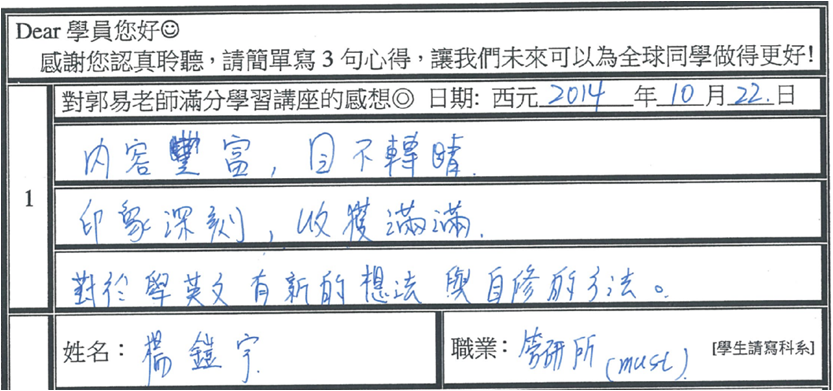 Dear 學員您好☺
感謝您認真聆聽，請簡單寫 3 句心得，讓我們未來可以為全球同學做得更好!
對郭易老師滿分學習講座的感想◎ 日期: 西元 2014 年 10 月 22. 日
1
內容豐富，目不轉睛.
印象深刻，收獲滿滿.
對於學英文有新的想法與自修的方法。
姓名： 楊鎧宇.
職業： 管研所 (must) [學生請寫科系]